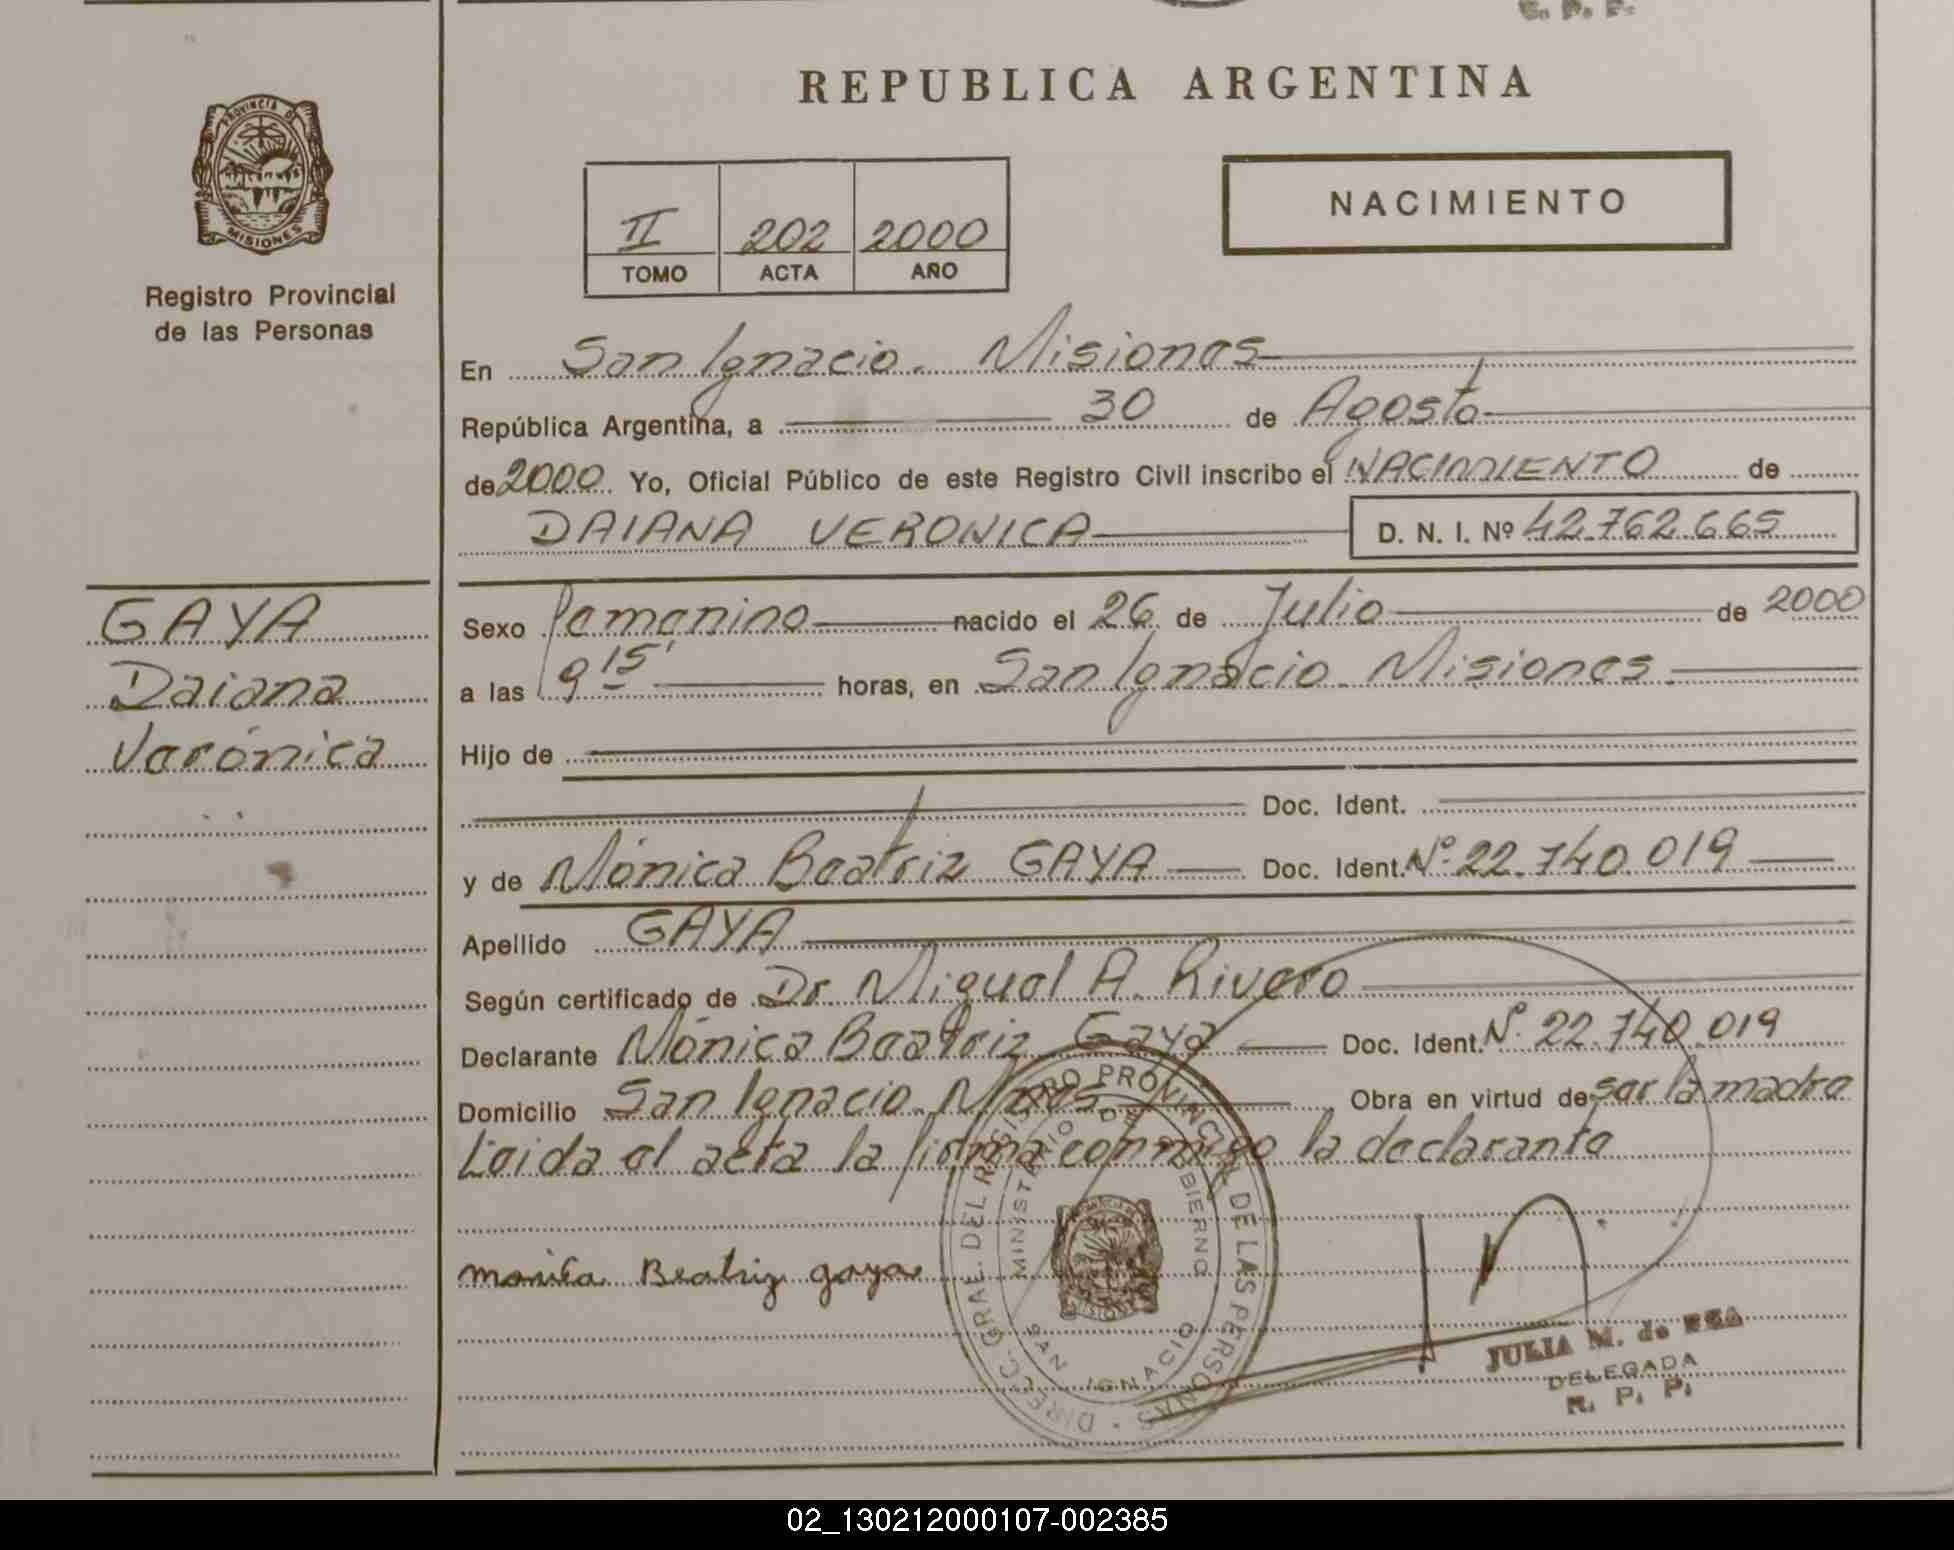 R. P. P.
REPUBLICA ARGENTINA
PROVINCIA DE
MISIONES
Registro Provincial
de las Personas
II 202 2000
TOMO ACTA AÑO
NACIMIENTO
En San Ignacio. Misiones
República Argentina, a 30 de Agosto
de 2000 Yo, Oficial Público de este Registro Civil inscribo el NACIMIENTO de
DAIANA VERONICA D. N. I. Nº 42.762.665
GAYA
Daiana
Verónica
Sexo femenino nacido el 26 de Julio de 2000
a las 9 15' horas, en San Ignacio. Misiones.
Hijo de
Doc. Ident.
y de Mónica Beatriz GAYA Doc. Ident. Nº 22.740.019
Apellido GAYA
Según certificado de Dr. Miguel A. Rivero
Declarante Mónica Beatriz Gaya Doc. Ident. Nº 22.740.019
Domicilio San Ignacio. Mnes. Obra en virtud de ser la madre
Leida el acta la firma conmigo la declarante
monica Beatriz gaya
DIREC. GRAL. DEL REGISTRO PROVINCIAL DE LAS PERSONAS
MINISTERIO DE GOBIERNO
SAN IGNACIO
MISIONES
JULIA M. de
DELEGADA
R. P. P.
02_130212000107-002385